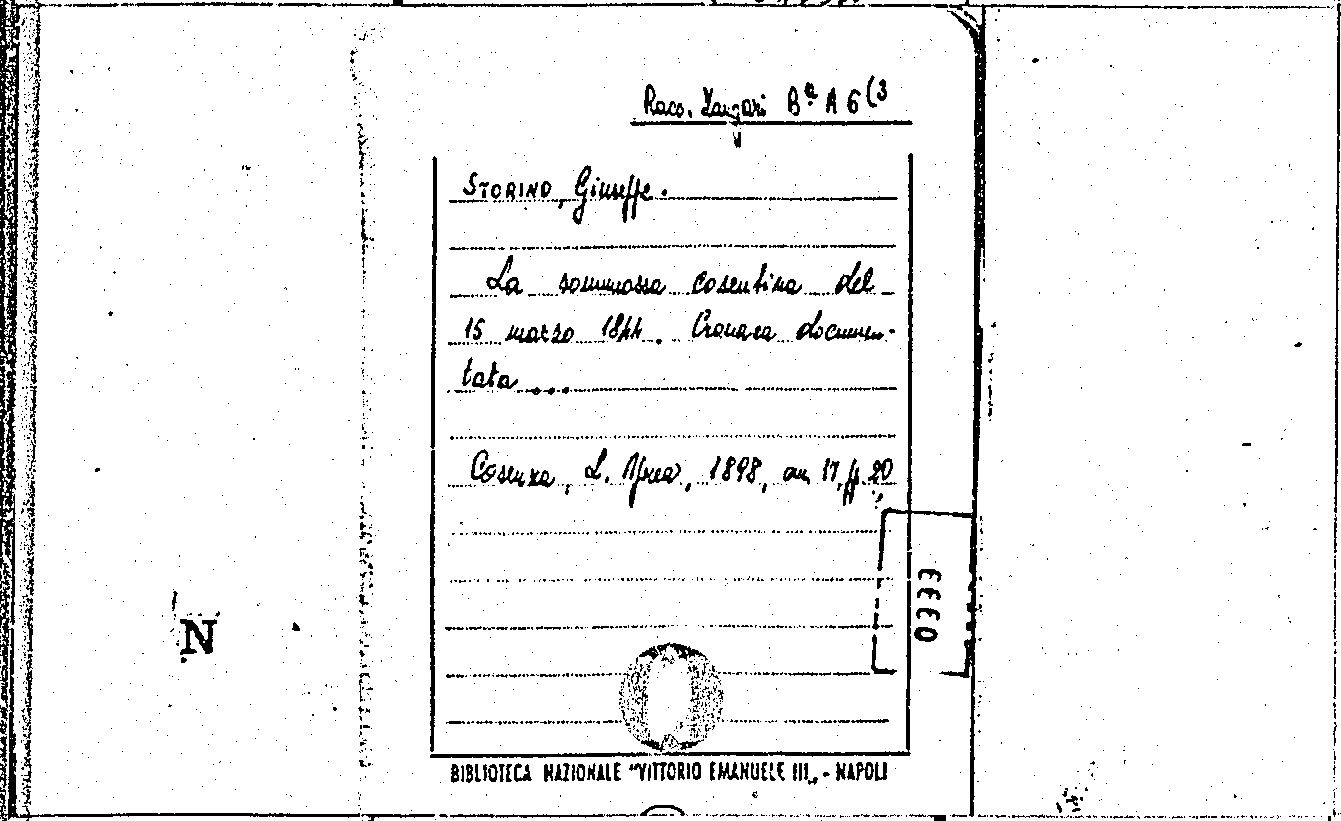 Racc. Zangari Bª A 6(3
STORINO, Giuseppe.
La sommossa cosentina del
15 marzo 1844. Cronaca documen-
tata...
Cosenza, L. Aprea, 1898, cm 17, pp. 20
0333
N
BIBLIOTECA NAZIONALE "VITTORIO EMANUELE III„ - NAPOLI